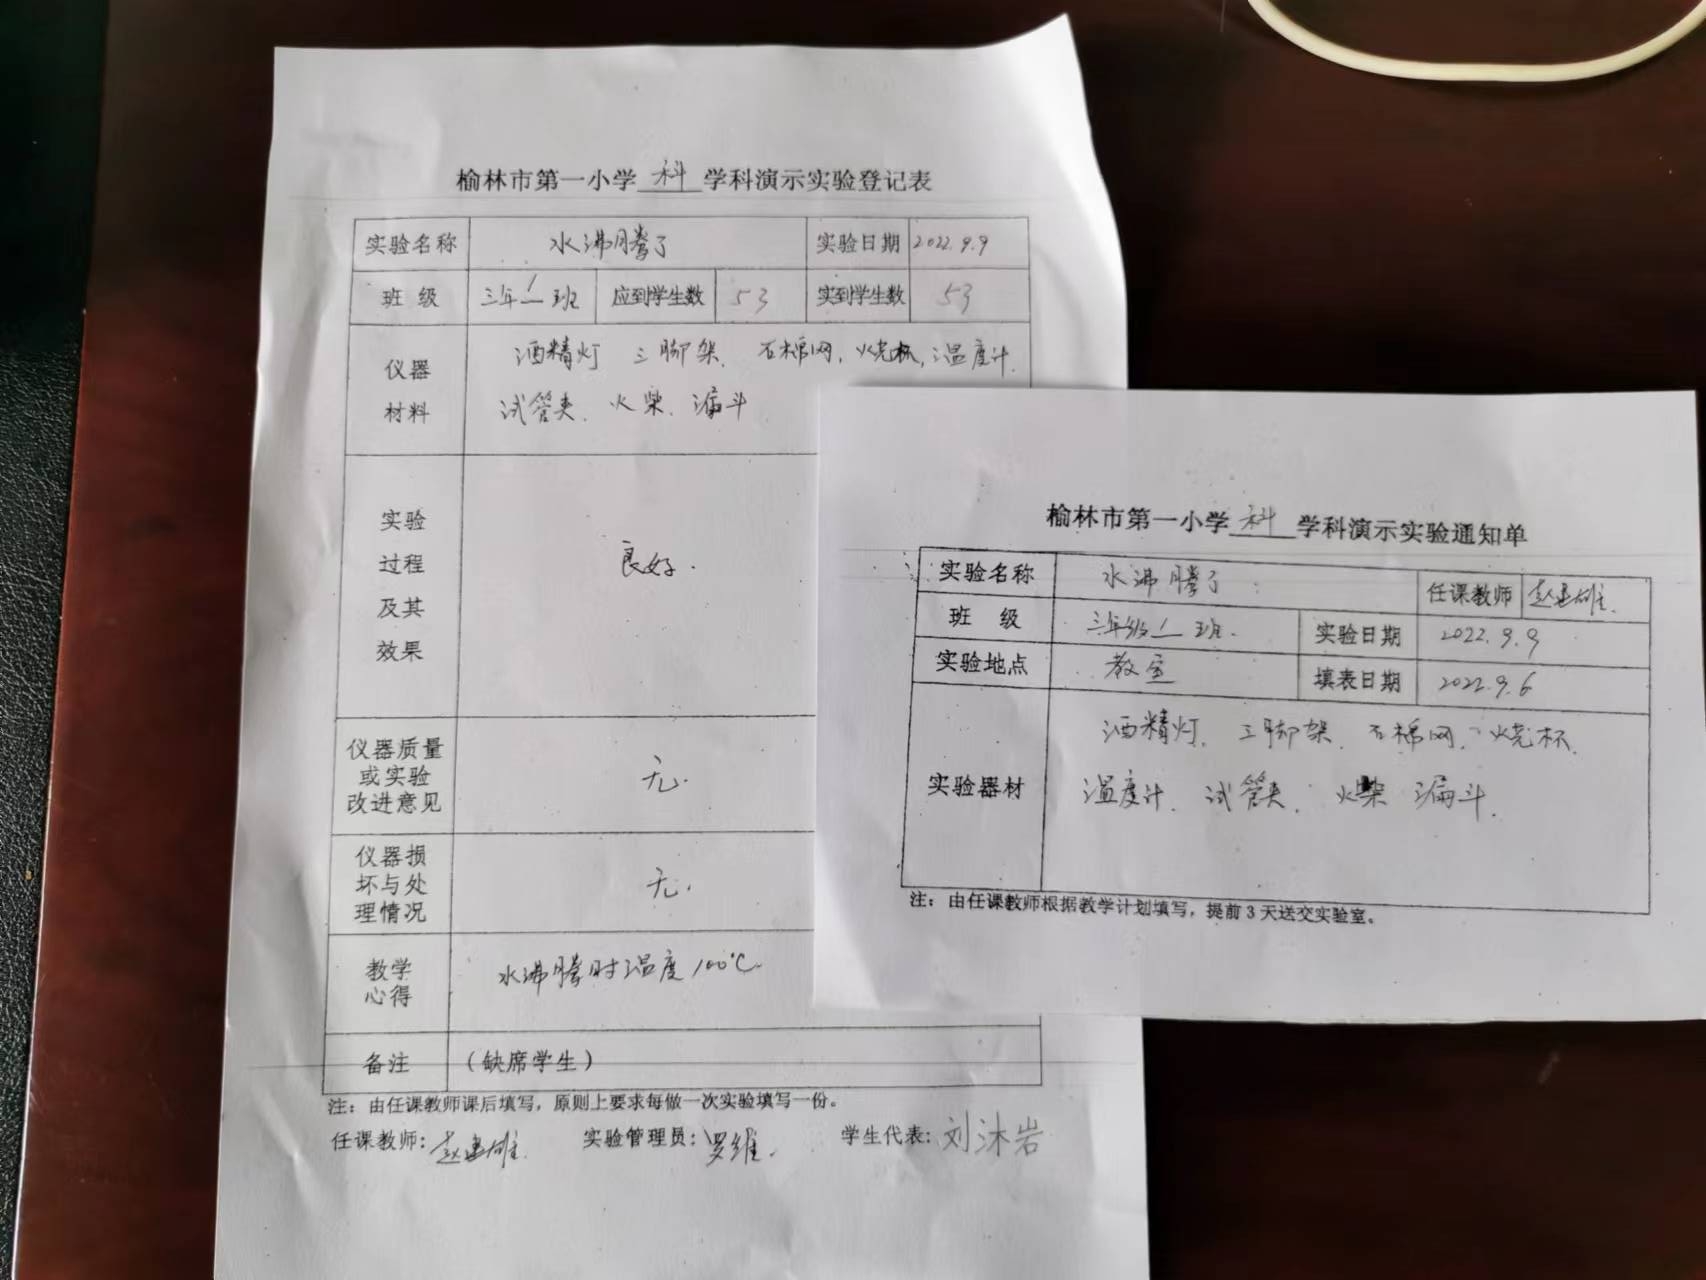 榆林市第一小学 科 学科演示实验登记表
实验名称 水沸腾了 实验日期 2022.9.9
班 级 三年1班 应到学生数 53 实到学生数 53
仪器
材料
酒精灯 三脚架、石棉网,烧杯,温度计.
试管夹、火柴、漏斗
实验
过程
及其
效果
良好.
仪器质量
或实验
改进意见
无.
仪器损
坏与处
理情况
无.
教学
心得
水沸腾时温度100℃.
备注 (缺席学生)
注:由任课教师课后填写,原则上要求每做一次实验填写一份。
任课教师:赵建雄. 实验管理员:罗维. 学生代表:刘沐岩
榆林市第一小学 科 学科演示实验通知单
实验名称 水沸腾了 任课教师 赵建雄.
班 级 三年级1班. 实验日期 2022.9.9
实验地点 教室 填表日期 2022.9.6
实验器材
酒精灯、三脚架、石棉网、烧杯、
温度计、试管夹、火柴 漏斗.
注:由任课教师根据教学计划填写,提前3天送交实验室。